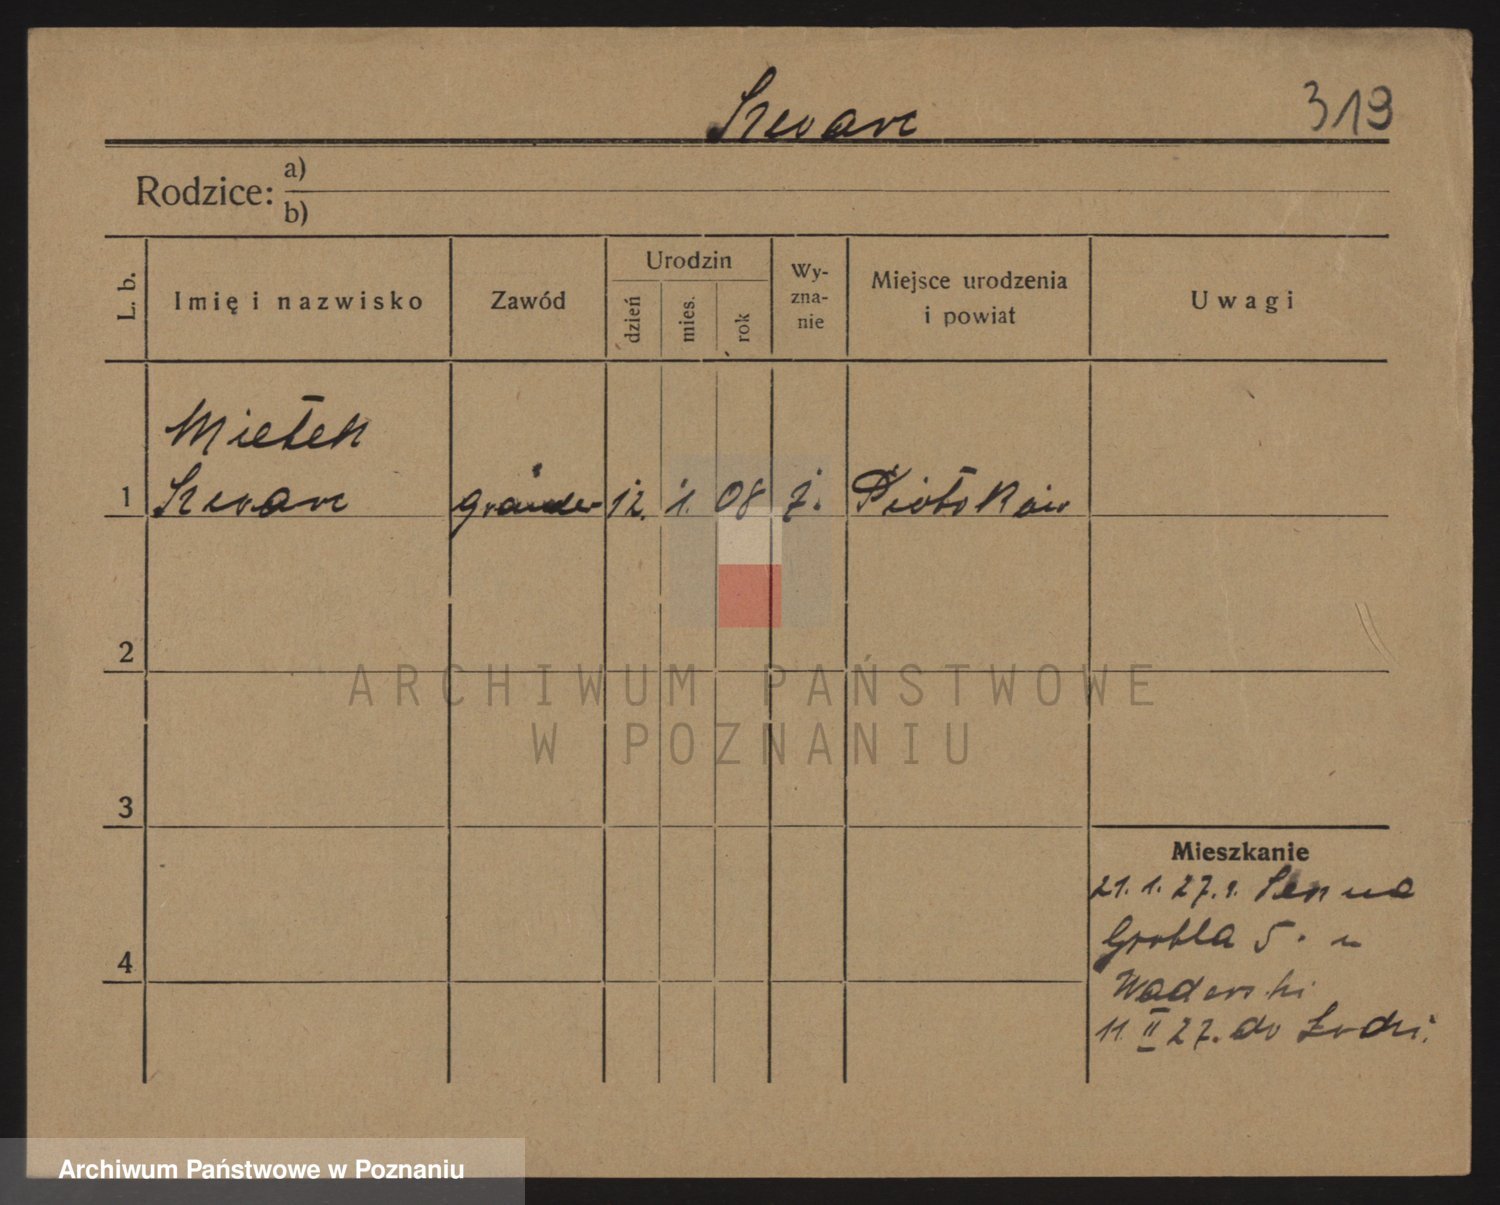 Szwarc 319
Rodzice: a)
b)
L. b. Imię i nazwisko Zawód Urodzin dzień mies. rok Wyznanie Miejsce urodzenia i powiat Uwagi
Mietek
1 Szwarc 12. 1. 08 ż. Piotrków
2
3
Mieszkanie
21. 1. 27. r.
4 Grobla 5. u
11 II 27. do Łodzi.
ARCHIWUM PAŃSTWOWE
W POZNANIU
Archiwum Państwowe w Poznaniu